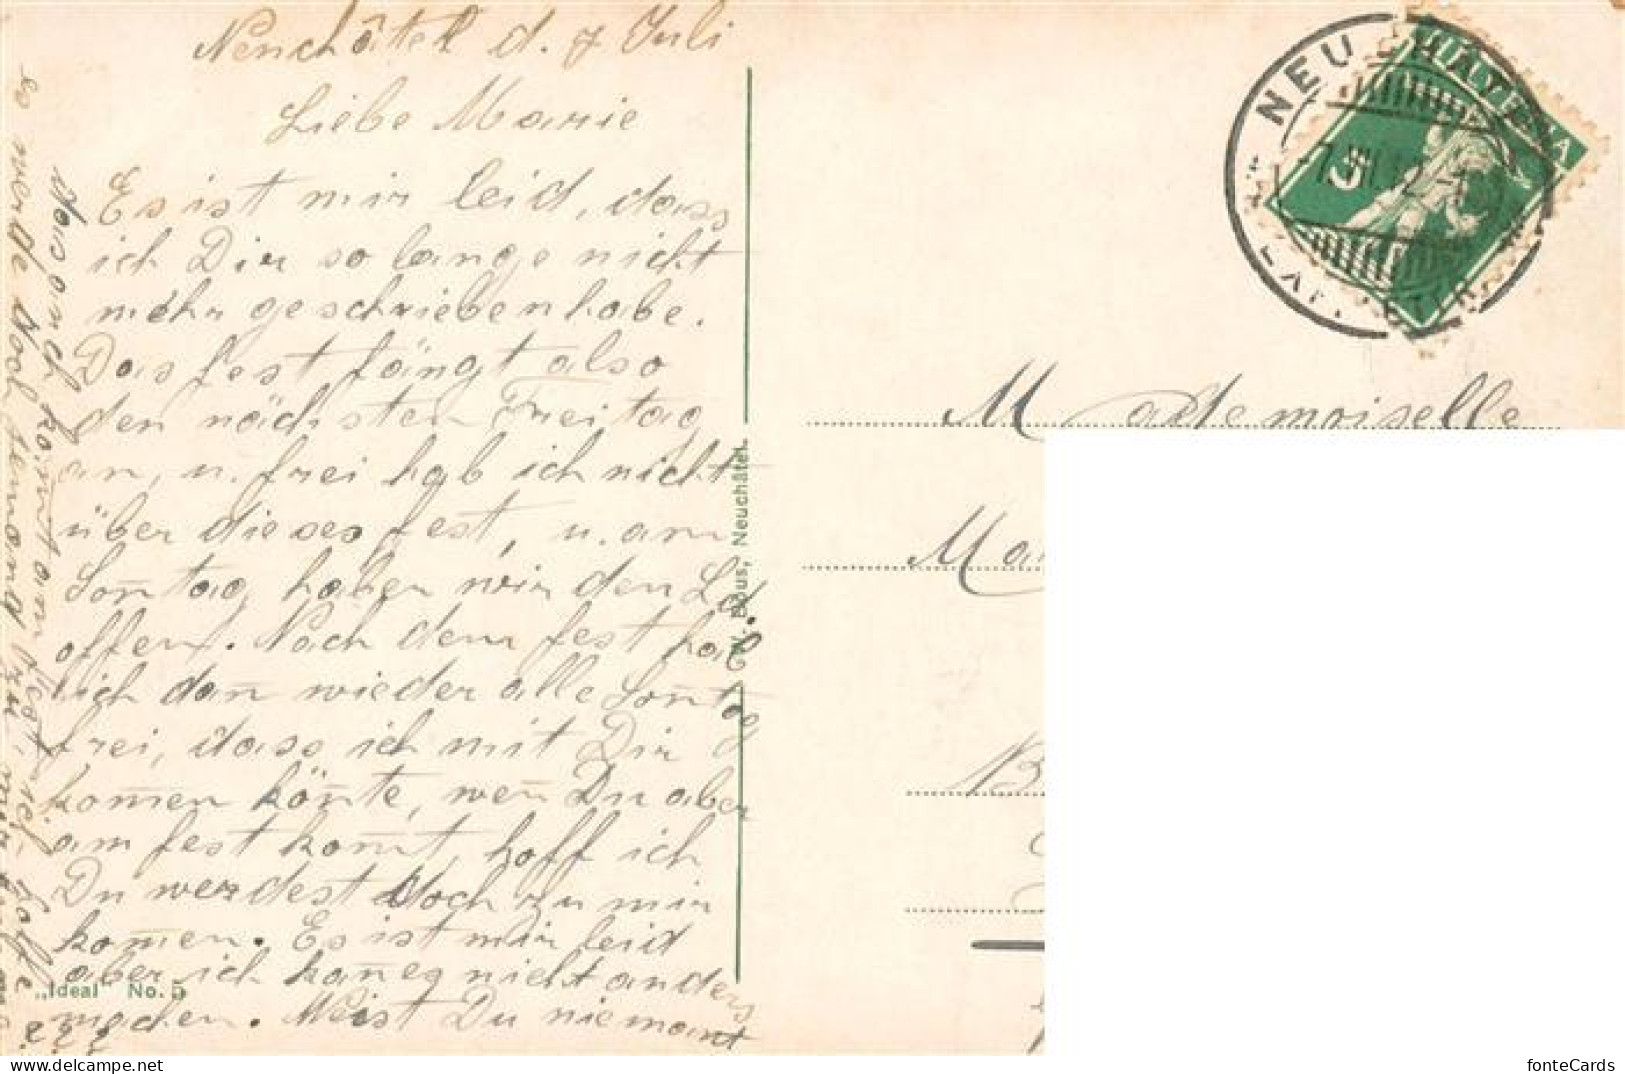 Neuchâtel d. 7 Juli
Liebe Marie
Es ist mir leid, dass
ich Dir so lange nicht
mehr geschrieben habe.
Das fest fängt also
den nächsten Freitag
an, u. frei hab ich nicht
über dieses fest, u. am
Son̄tag haben wir den Lad.
offen. Nach dem fest hab
ich dan̄ wieder alle Son̄tag
frei, dass ich mit Dir
kom̄en kön̄te, wen̄ Du aber
am fest kom̄t, hoff ich
Du werdest doch zu mir
kom̄en. Es ist mir leid
aber ich kan̄ es nicht anders
machen. Weist Du niemant
???
kom̄t am fest, ich hoffe
es werde doch jemand zu mir
„Ideal" No. 5
Neuchâtel.
NEUCHÂTEL
7.VII.12
HELVETIA
5
Mademoiselle